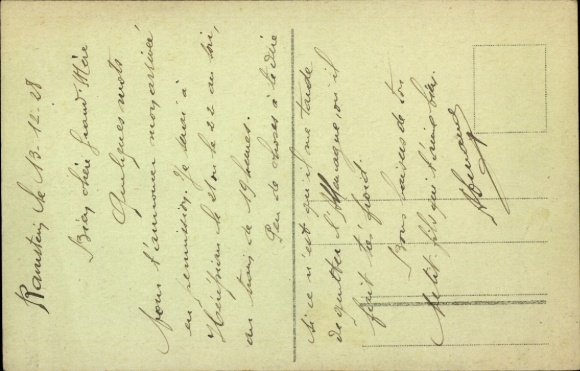 Ramstein le 13-12-28
Bien chère Grand'Mère
Quelques mots
pour t'annoncer mon arrivée
en permission. Je serai à
le 21 ou le 22 au soir,
au train de 19 heures.
Peu de choses à te dire
Si ce n'est qu'il me tarde
de quitter l'Allemagne, où il
fait très froid.
Bons baisers de ton
Petit fils qui t'aime bien.